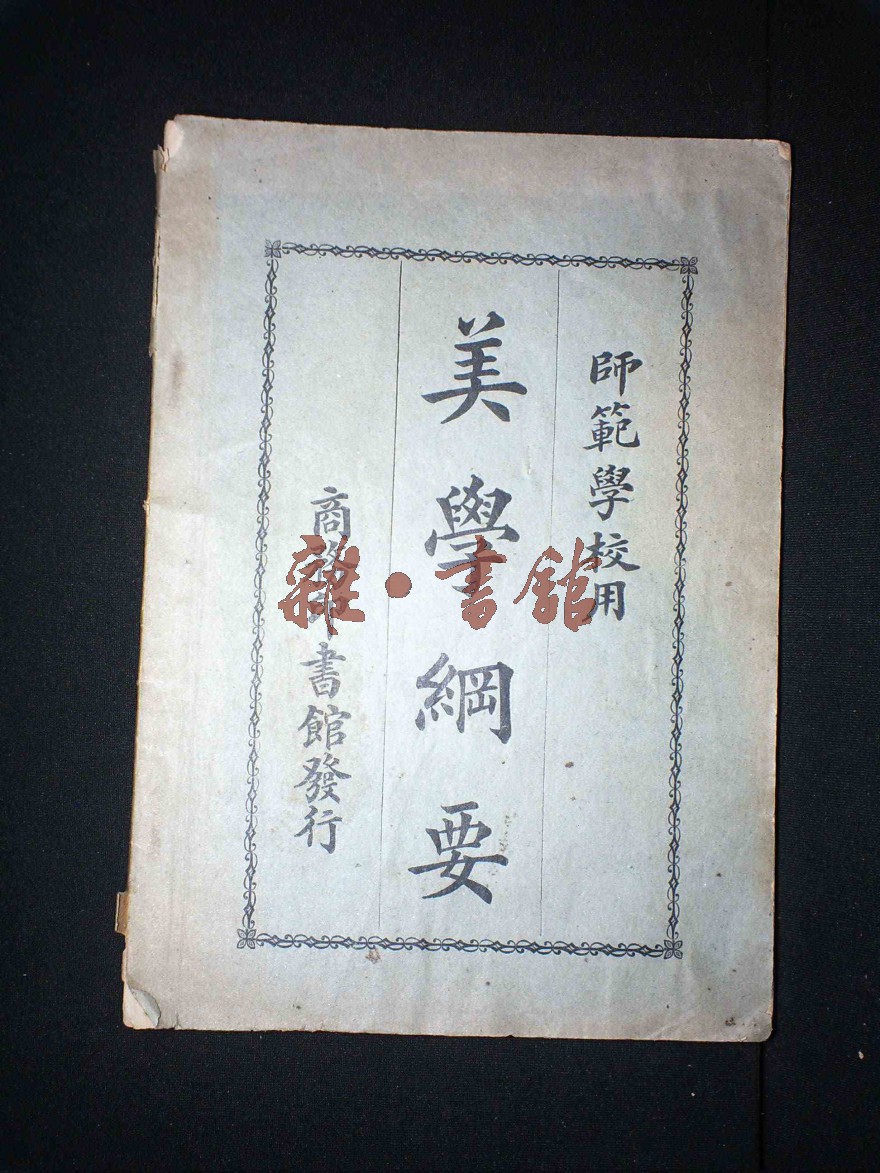 師範學校用
美學綱要
商務印書館發行
雜·書館